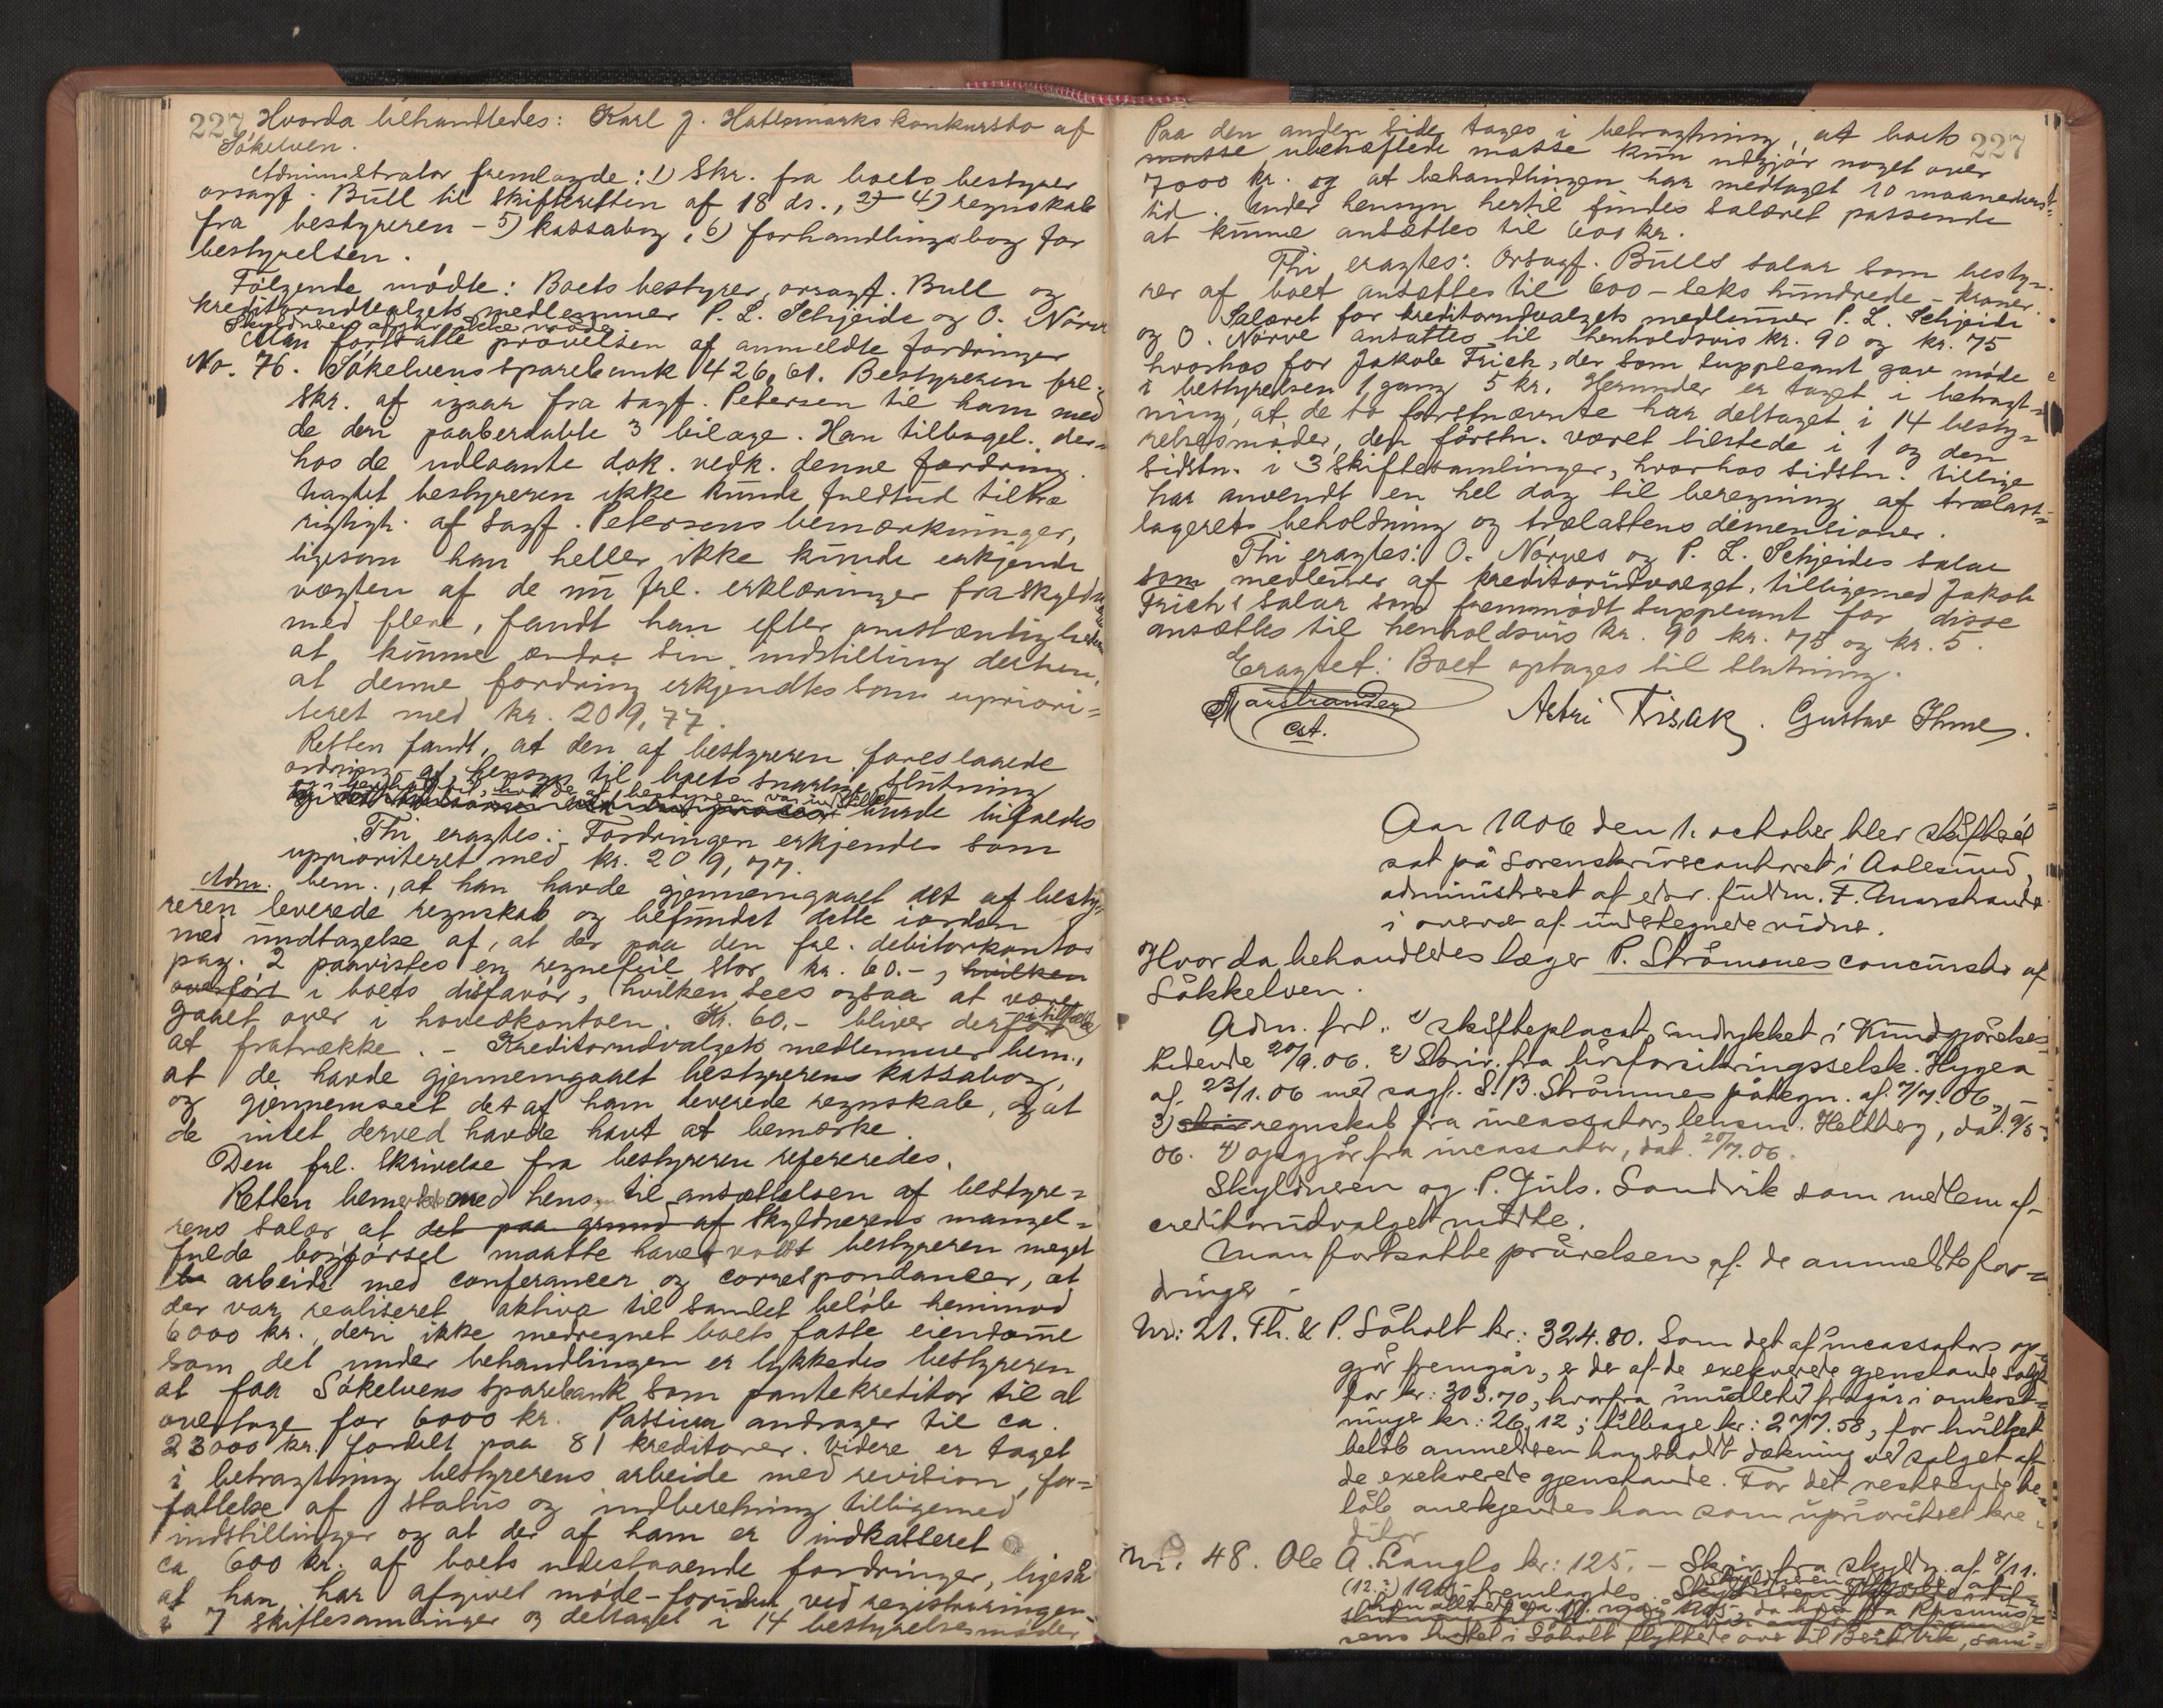 227 Hvorda behandledes: Karl J. Hatlemarks konkursbo af
Søkelven.
Administrator fremlagde: 1) Skr. fra boets bestyrer
orsagf. Bull til skifteretten af 18 ds., 2) - 4) regnskab
fra bestyreren - 5) kassabog, 6) forhandlingsbog for
bestyrelsen.
Følgende mødte: Boets bestyrer, orsagf. Bull og
kreditorudvalgets medlemmer P. L. Schjeide og O. Nørve
Skyldneren mødte
Man fortsatte prøvelsen af anmeldte fordringer
No. 76. Søkelvens sparebank 426,61. Bestyreren frl.
Skr. af igaar fra sagf. Petersen til ham med
de deri paaberaabte 3 bilage. Han tilbagel. der=
hos de udlaante dok. vedk. denne fordring.
Uagtet bestyreren ikke kunde fuldtud tiltræ
rigtigh. af sagf. Petersens bemærkninger,
ligesom han heller ikke kunde erkjende
vægten af de nu frl. erklæringer fra skyldn
med flere, fandt han efter omstændigheden
at kunne ændre sin indstilling derhen,
at denne fordring erkjendtes som upriori=
teret med kr. 209,77.
Retten fandt, at den af bestyreren foreslaaede
ordning af hensyn til boets snarlige slutning
burde bifaldes
Thi eragtes: Fordringen erkjendes som
uprioriteret med kr. 209,77.
Adm. bem., at han havde gjennemgaaet det af besty=
reren leverede regnskab og befundet dette iorden
med undtagelse af, at der paa den frl. debitorkonto
pag. 2 paavistes en regnefeil stor kr. 60.-, hvilken
overført i boets disfavør, hvilken sees ogsaa at være
gaaet over i hovedkontoen. Kr. 60.- bliver derfor
at fratrække. - Kreditorudvalgets medlemmer bem.,
at de havde gjennemgaaet bestyrerens kassabog,
og gjennemseet det af ham leverede regnskab, og at
de intet derved havde havt at bemærke.
Den frl. skrivelse fra bestyreren refereredes.
Retten bemerkede med hens. til ansættelsen af bestyre=
rens salær at det paa grund af skyldnerens mangel=
fulde bogførsel maatte have voldt bestyreren meget
arbeide med conferancer og correspondancer, at
der var realiseret aktiva til samlet beløb henimod
6000 kr., deri ikke medregnet boets faste eiendomme
som det under behandlingen er lykkedes bestyreren
at faa Søkelvens sparebank som pantekreditor til at
overtage for 6000 kr. Passiva andrager til ca.
23000 kr. fordelt paa 81 kreditorer. Videre er taget
i betragtning bestyrerens arbeide med revision, for=
fattelse af status og indberetning tilligemed
indstillinger og at der af ham er indkasseret
ca 600 kr. af boets udestaaende fordringer, ligesaa
at han har afgivet møde foruden ved registreringen
i 7 skiftesamlinger og deltaget i 14 bestyrelsesmøder
Paa den anden side tages i betragtning, at boets 227
masse ubehæftede masse kun udgjør noget over
7000 kr. og at behandlingen har medtaget 10 maaneders
tid. Under hensyn hertil findes salæret passende
at kunne ansættes til 600 kr.
Thi eragtes: Orsagf. Bulls salær som besty=
rer af boet ansættes til 600 - seks hundrede - kroner.
Salæret for kreditorudvalgets medlemmer P. L. Schjeide
og O. Nørve ansættes til henholdsvis kr. 90 og kr. 75
hvorhos for Jakob Frich, der som suppleant gav møde
i bestyrelsen 1 gang 5 kr. Herunder er taget i betragt=
ning, at de to førstnævnte har deltaget i 14 besty=
relsesmøder, den førstn. været tilstede i 1 og den
sidstn. i 3 skiftesamlinger, hvorhos sidstn. tillige
har anvendt en hel dag til beregning af trælast=
lagerets beholdning og trælastens dimensioner.
Thi eragtes: O. Nørves og P. L. Schjeides salær
som medlemmer af kreditorudvalget, tilligemed Jakob
Frichs salær som fremmødt suppleant for disse
ansættes til henholdsvis kr. 90 kr. 75 og kr. 5.
Eragtet: Boet optages til slutning.
cst. Gustav Ihme.
Aar 1906 den 1. october blev skifteret
sat på sorenskrivercontoret i Aalesund,
administreret af edsv. fuldm. F. Marstrander
i overvær af undertegnede vidner.
Hvorda behandledes læger P. Strømmes concursbo af
Søkkelven.
Adm. frl.: 1) skifteplacat, indrykket i Kundgjørelses=
tidende 20/9.06. 2) Skriv. fra livforsikringsselsk. Hygea
af 23/1.06 med sagf. S. B. Strømmes påtegn. af 7/7.06, -
3) regnskab fra incassator, lensm. Heltberg, dat. 9/5
06. 4) opgjør fra incassator, dat. 20/7.06.
Skyldneren og P. Juls. Sandvik som medlem af
creditorudvalget mødte.
Man fortsatte prøvelsen af de anmeldte for=
dringer
Nr: 21. Th. & P. Søholt kr: 324.80. Som det af incassators op=
gjør fremgår, er der af de exekverede gjenstande solgt
for kr: 303.70, hvorfra imidlertid fragår i omkost=
ninger kr: 26,12; tilbage kr: 277.58, for hvilket
beløb anmelderen har sholdt dækning ved salget af
de exekverede gjenstande. For det resterende be=
løb anerkjendes han som uprioriteret kre=
ditor
Nr. 48. Ole A. Langlo kr: 125. - Skriv. fra skyldn. af 8/11.
fremlagdes.
rens hotel i Søholt flyttede over til